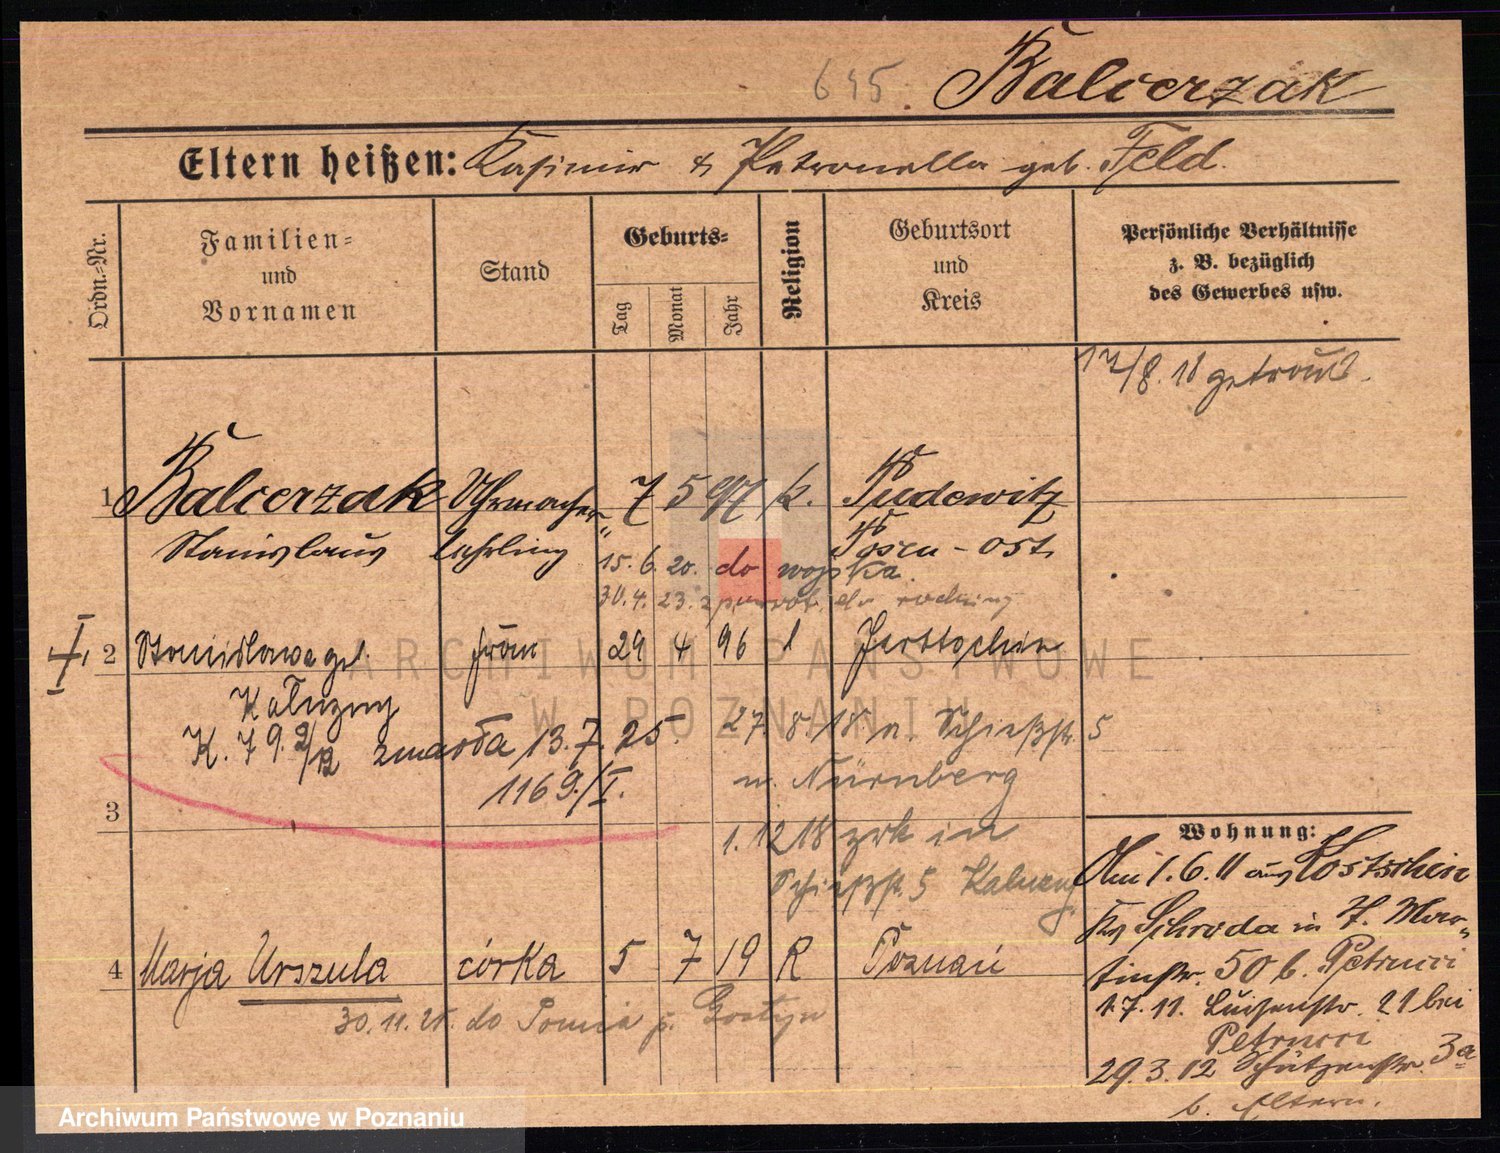 645. Balcerzak
Eltern heißen: Kasimir & Petronella geb. Feld.
Ordn.-Nr.
Familien-
und
Vornamen
Stand
Geburts-
Tag
Monat
Jahr
Religion
Geburtsort
und
Kreis
Persönliche Verhältnisse
z. B. bezüglich
des Gewerbes usw.
17/8. 18 getraut.
1 Balcerzak Uhrmacher- 7 5 97 k. Pudewitz
Stanislaus lehrling Posen-Ost.
15. 6. 20. do wojska.
30. 4. 23. z powrot. do rodziny
2 Stanislawa geb. Frau 29 4 96
Kałuzny
K. 79. zmarła 13. 7. 25.
1169/I.
27. 8 18 n Schießstr. 5
n. Nürnberg
3
1. 12 18 zrk in
Schießstr. 5 Kaluzny
4 Marja Urszula córka 5 7 19 R Poznań
30. 11. 25. do p. Gostyn
Wohnung:
Am 1. 6. 11 aus Kostschin
Kr Schroda in St. Mar-
tinstr. 50 b. Petrucci
1. 7. 11. Luisenstr. 21 bei
Petrucci
29. 3. 12 Schützenstr. 3a
b. Eltern.
ARCHIWUM PAŃSTWOWE
W POZNANIU
Archiwum Państwowe w Poznaniu